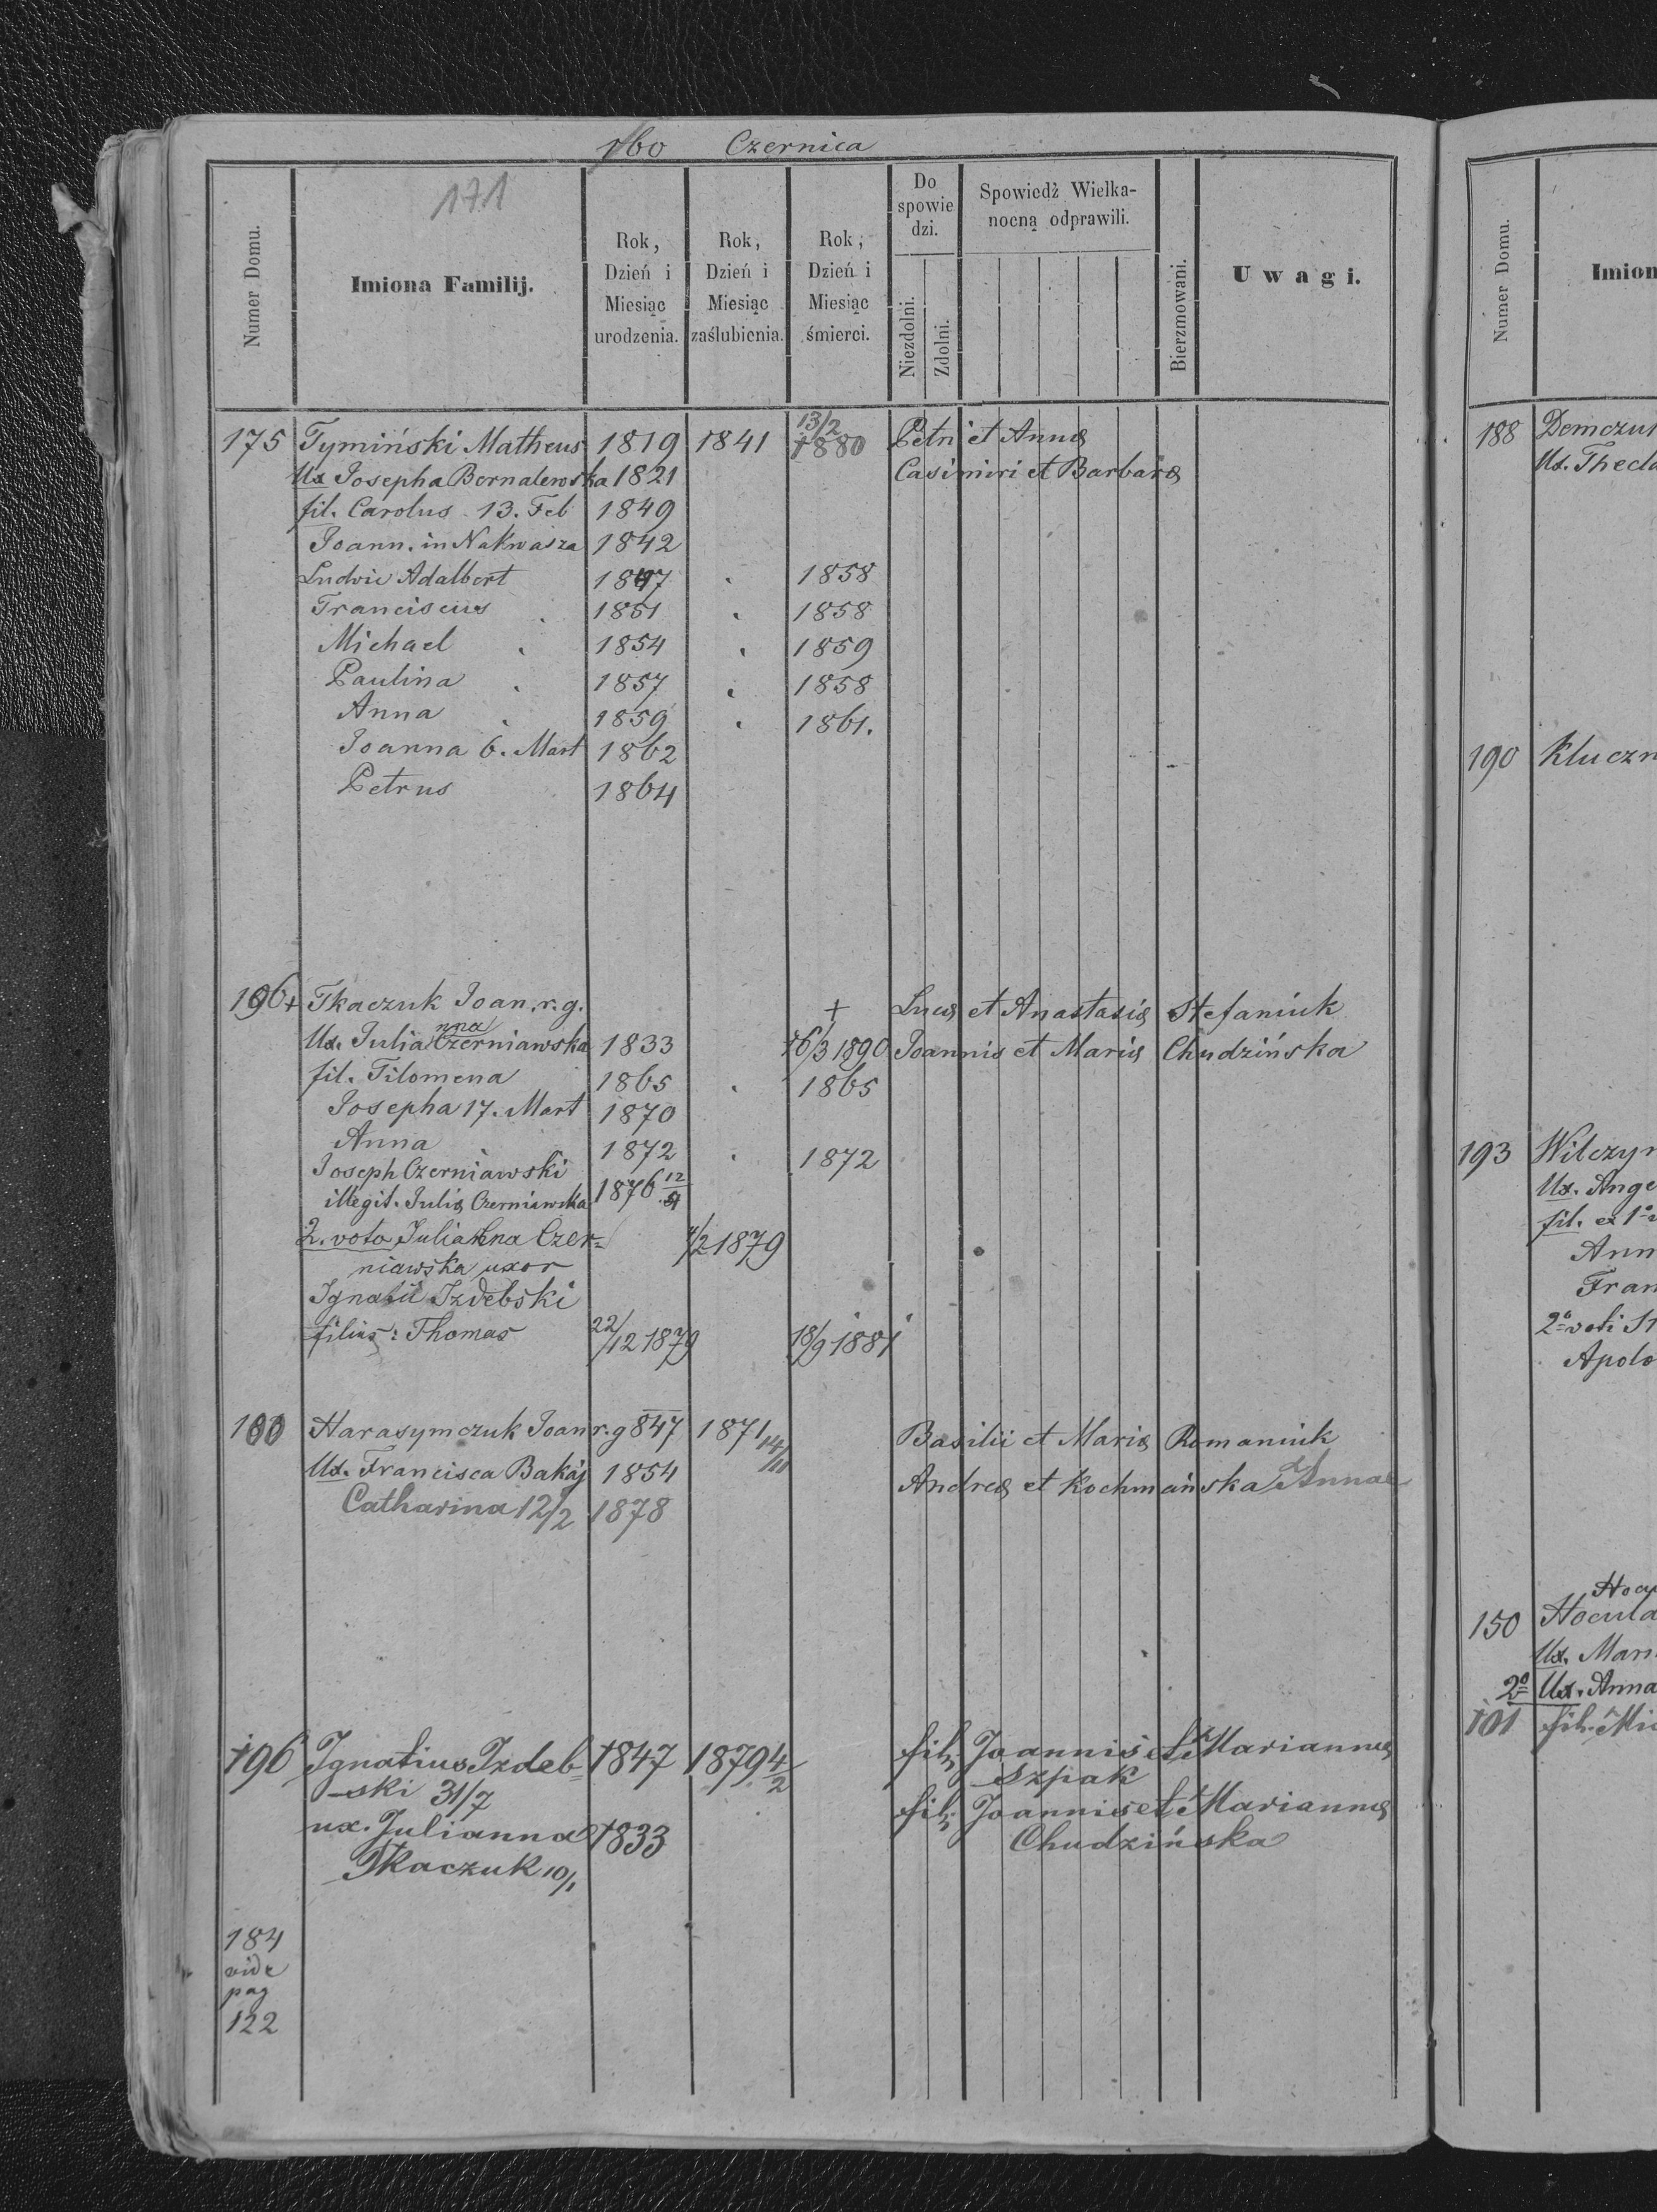 160 Czernica
171
Numer Domu.
Imiona Familij.
Rok, Dzień i Miesiąc urodzenia.
Rok, Dzień i Miesiąc zaślubienia.
Rok, Dzień i Miesiąc śmierci.
Do spowie dzi.
Niezdolni.
Zdolni.
Spowiedź Wielka-
nocną odprawili.
Bierzmowani.
Uwagi.
175 Tymiński Matheus 1819 1841 13/2 1880 Petri et Annæ
Ux Josepha Bernalewska 1821 Casimiri et Barbaræ
fil. Carolus 13. Feb 1849
Joann. in Nakwasza 1842
Ludvic Adalbert 1847 1858
Franciscus 1851 1858
Michael 1854 1859
Paulina 1857 1858
Anna 1859 1861.
Joanna 6. Mart 1862
Petrus 1864
196+ Tkaczuk Joan. r. g. + Lucæ et Anastasiæ Stefaniuk
nna
Ux. Julia Czerniawska 1833 16/3 1890 Joannis et Mariæ Chudzińska
fil. Filomena 1865 1865
Josepha 17. Mart 1870
Anna 1872 1872
Joseph Czerniawski
illegit. Juliæ Czerniawska 1876 12/4
2. voto Julianna Czer=
niawska uxor 4/2 1879
Ignatii Izdebski
filius: Thomas 22/12 1879 18/9 1881
Harasymczuk Joan r. g 847 1871 14/11 Basilii et Mariæ Romaniuk
Ux. Francisca Bakaj 1854 Andreæ et Kochmańska Annae
Catharina 12/2 1878
196 Ignatius Izdeb= 1847 1879 4/2 fil. Joannis et Mariannæ
-ski 31/7 Szpak
ux. Julianna 1833 fil. Joannis et Mariannæ
Tkaczuk 10/1 Chudzińska
184
vide
pag
122
Numer Domu.
Imion
188 Demczu
Ux. Thecla
190 Kluczn
193 Wilczyn
Ux. Ange
fil. ex 1º v
Ann
Fran
2º voti St
Apolo
Hocu
150 Hocula
Ux. Mari
2º Ux. Anna
101 fil. Mic